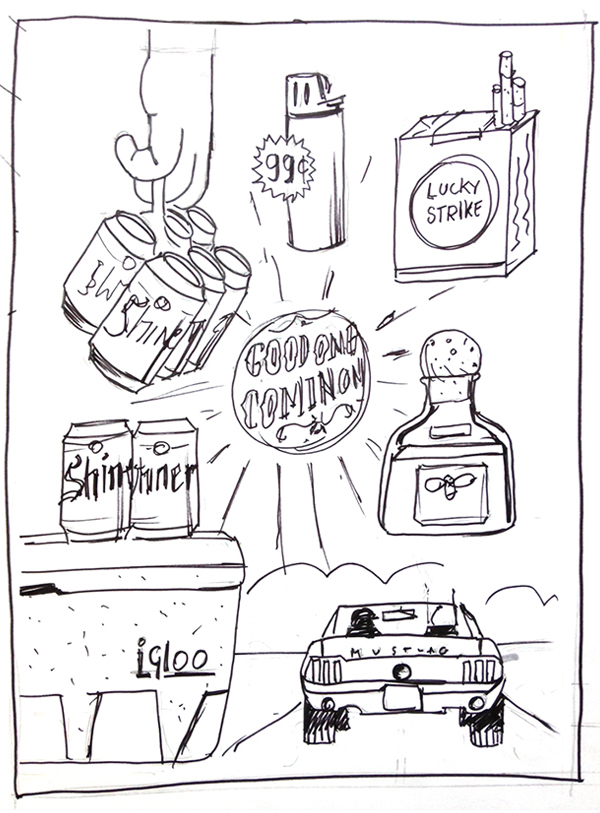 99¢
LUCKY
STRIKE
Shine
GOOD ONE
COMIN ON
Shin
hiner
igloo
MUSTANG